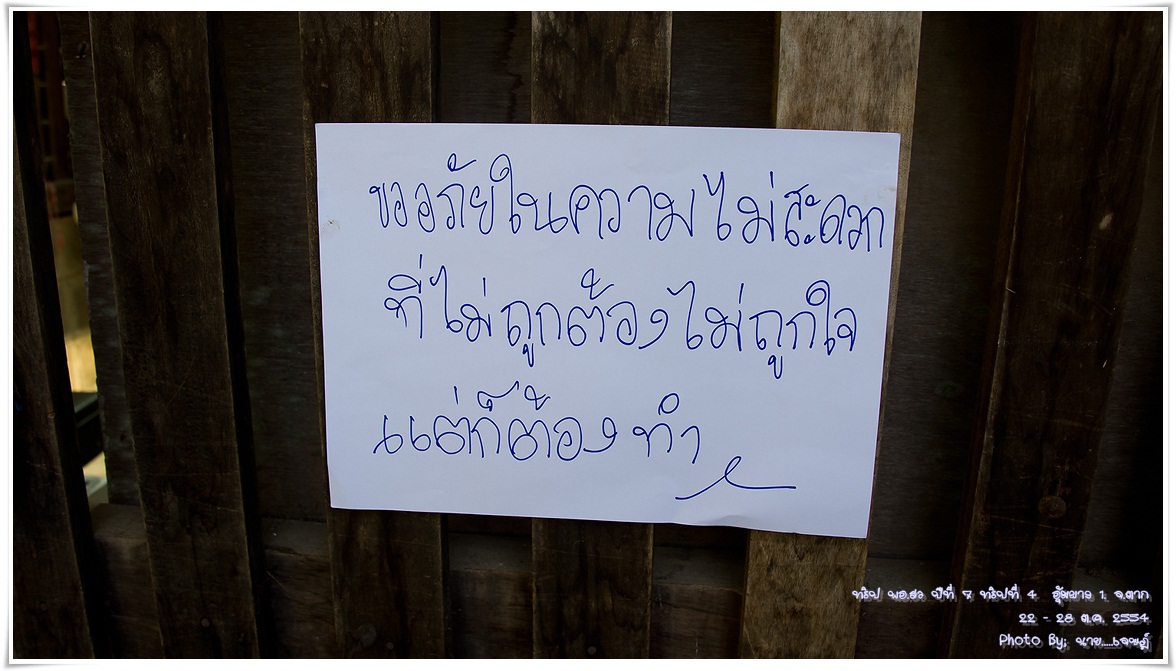 ขออภัยในความไม่สะดวก
ที่ไม่ถูกต้องไม่ถูกใจ
แต่ก็ต้องทำ
ทริป พอ.สว ปีที่ 7 ทริปที่ 4 อุ้มผาง 1 จ.ตาก
22 - 28 ต.ค. 2554
Photo By; นาย....เจษฎ์